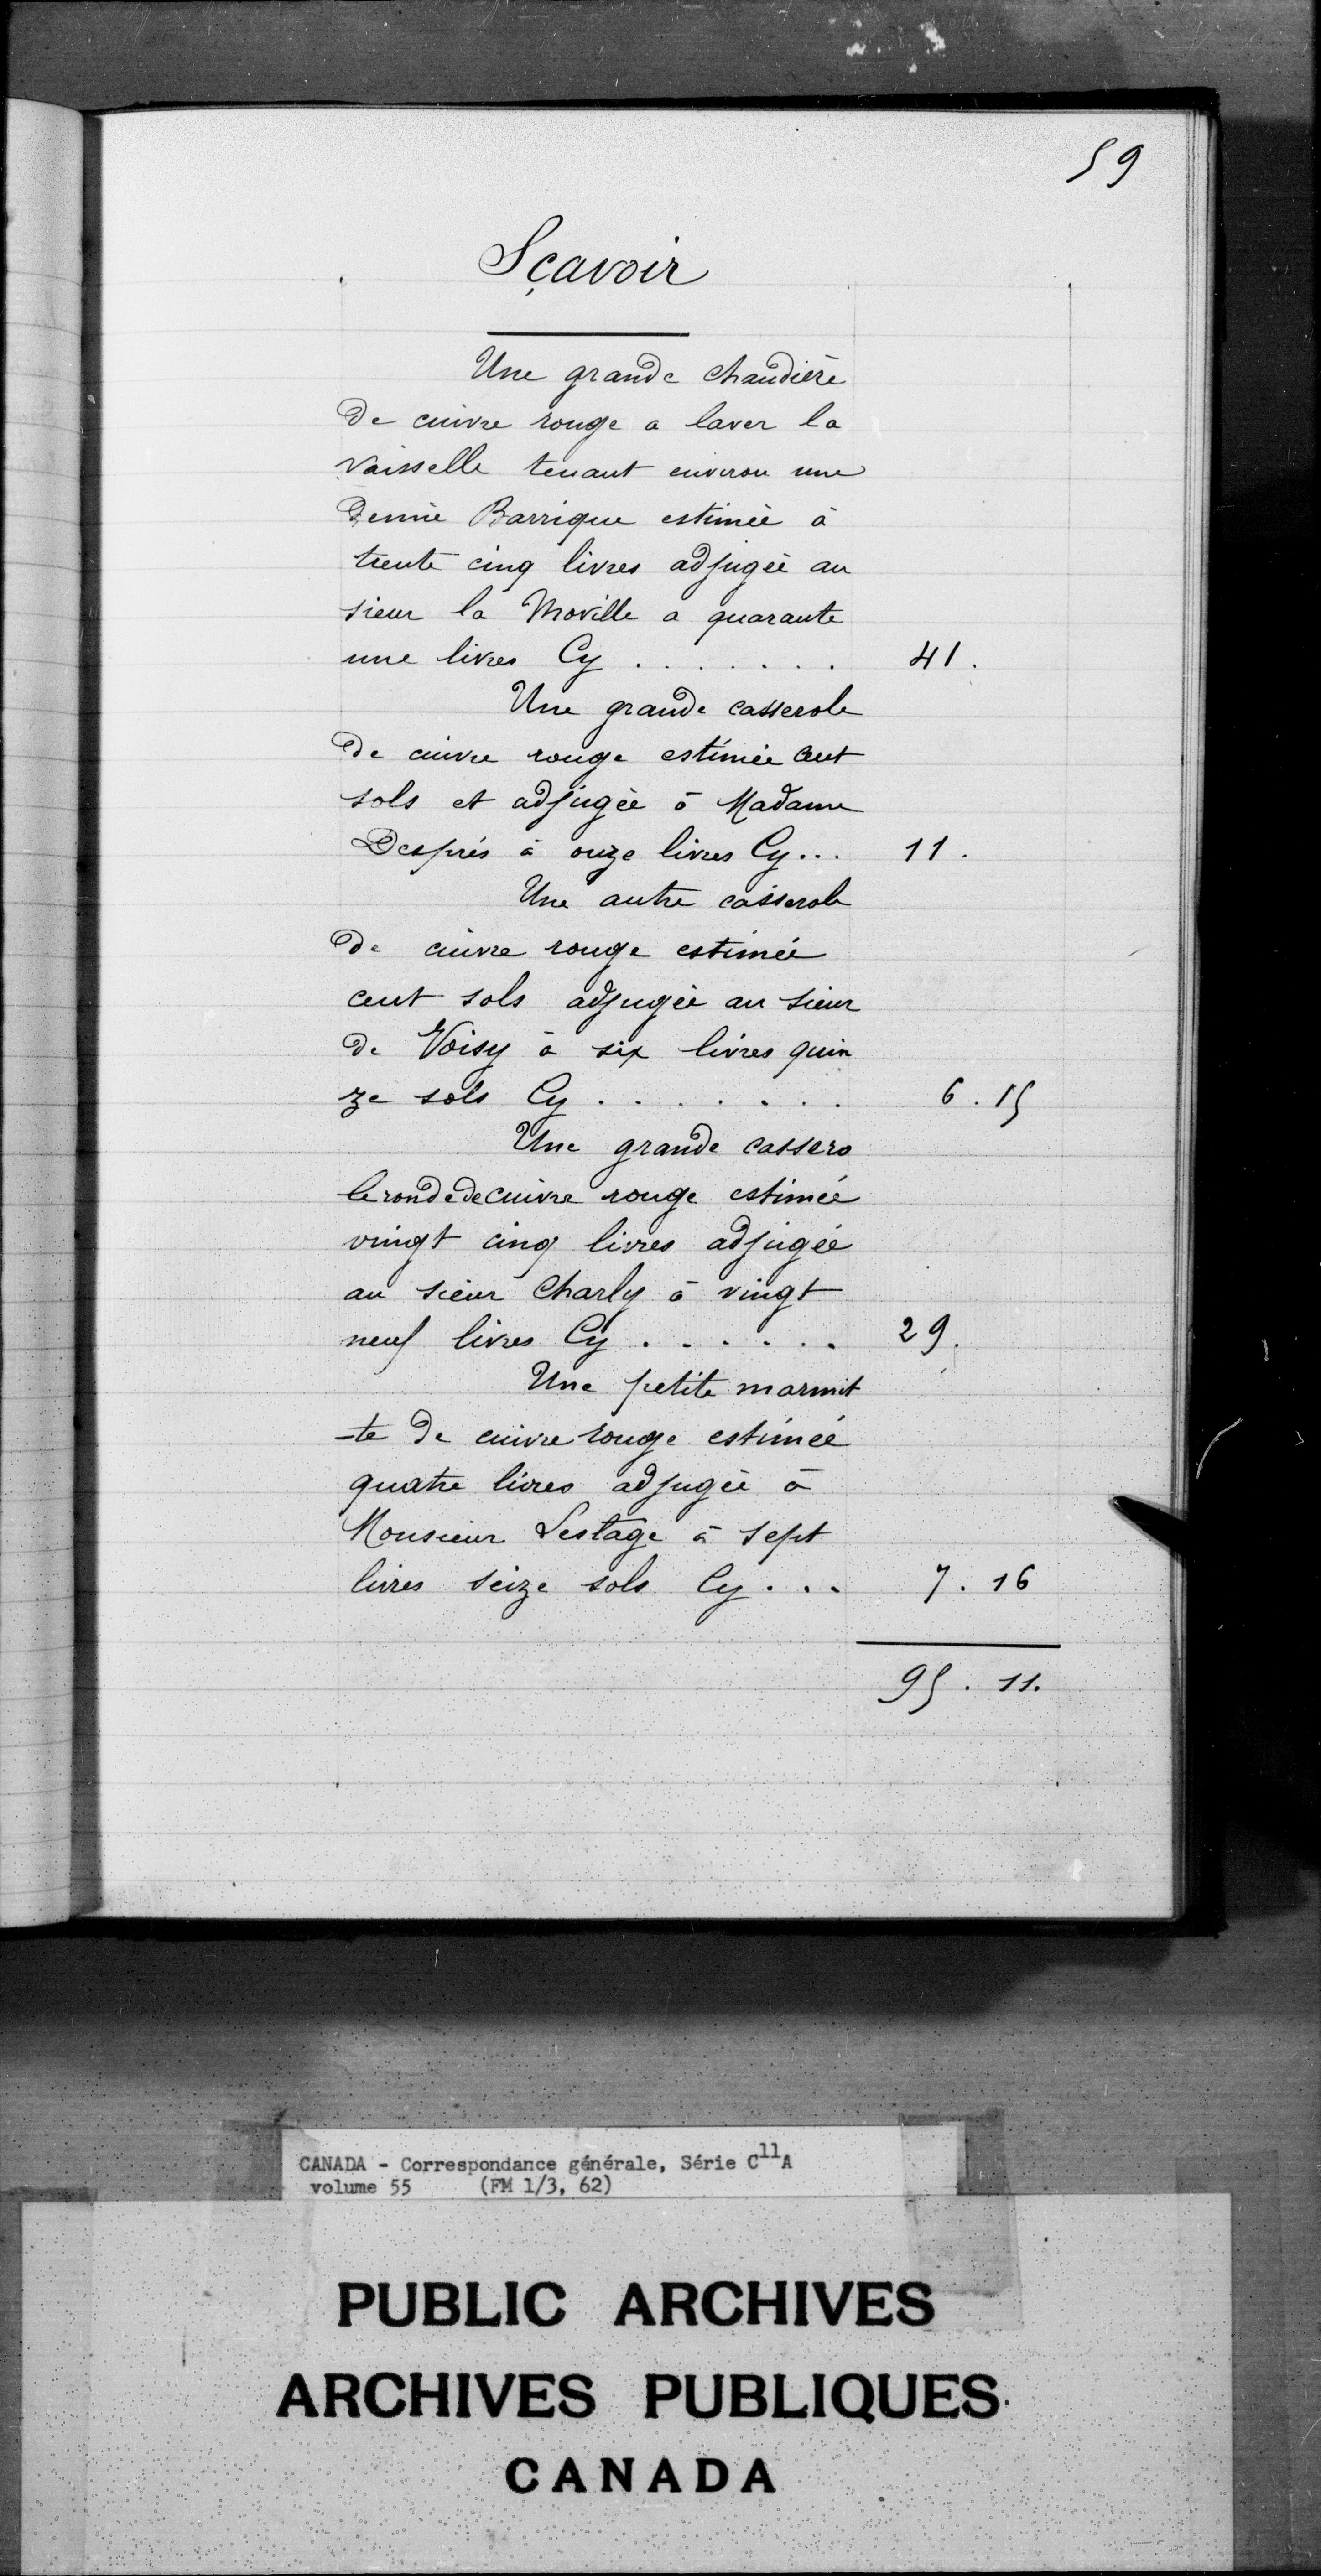 59
Sçavoir
Une grande chaudière
de cuivre rouge a laver la
vaisselle tenant environ une
demie Barrique estimée à
trente cinq livres adjugée au
sieur la Moville a quarante
une livres Cy . . . . . . . 41.
Une grande casserole
de cuivre rouge estimée cent
sols et adjugée à Madame
Després à onze livres Cy... 11.
Une autre casserole
de cuivre rouge estimée
cent sols adjugée au sieur
de Voisy à six livres quin
ze sols Cy . . . . . . . 6. 15
Une grande cassero
le ronde de cuivre rouge estimée
vingt cinq livres adjugée
au sieur Charly à vingt
neuf livres Cy . . . . . . 29.
Une petite marmit
-te de cuivre rouge estimée
quatre livres adjugée à
Monsieur Lestage à sept
livres seize sols Cy . . . 7. 16
95. 11.
CANADA - Correspondance générale, Série C11A
volume 55 (FM 1/3, 62)
PUBLIC ARCHIVES
ARCHIVES PUBLIQUES
CANADA